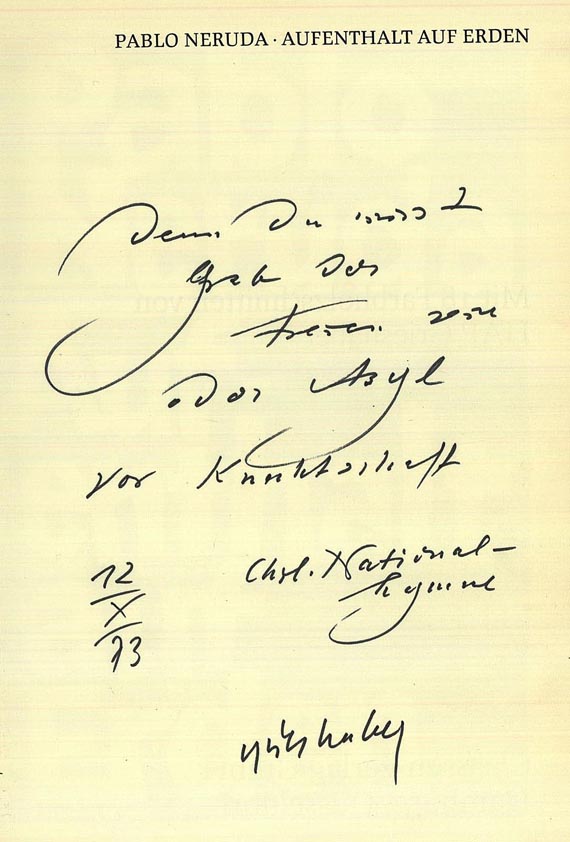 PABLO NERUDA · AUFENTHALT AUF ERDEN
Denn Du wirst
Grab der
Freien sein
oder Asyl
vor Knechtschaft
Chil. National-
hymne
12
X
73
grieshaber